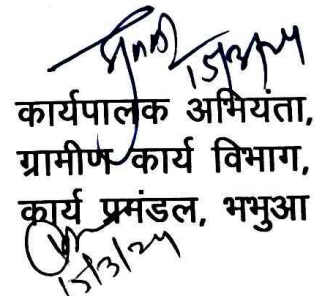 15/3/24
कार्यपालक अभियंता,
ग्रामीण कार्य विभाग,
कार्य प्रमंडल, भभुआ
15/3/24